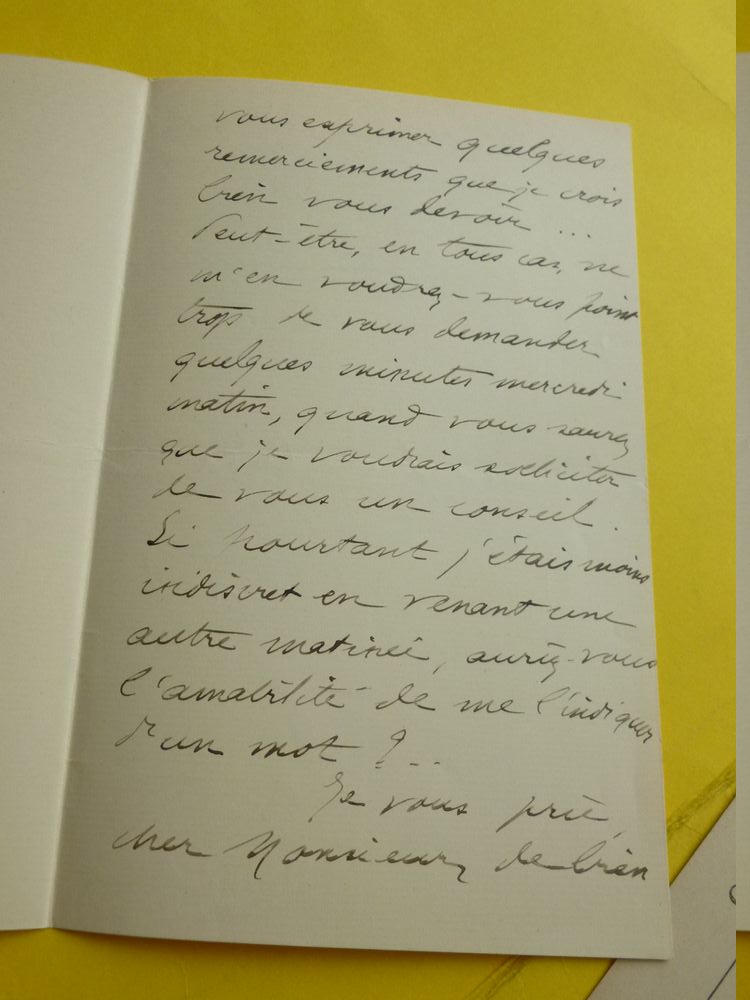 vous exprimer quelques
remerciements que je crois
bien vous devoir ...
Peut-être, en tous cas, ne
m'en voudrez-vous point
trop de vous demander
quelques minutes mercredi
matin, quand vous saurez
que je voudrais solliciter
de vous un conseil.
Si pourtant j'étais moins
indiscret en venant une
autre matinée, auriez-vous
l'amabilité de me l'indiquer
d'un mot ?..
Je vous prie,
cher Monsieur, de bien